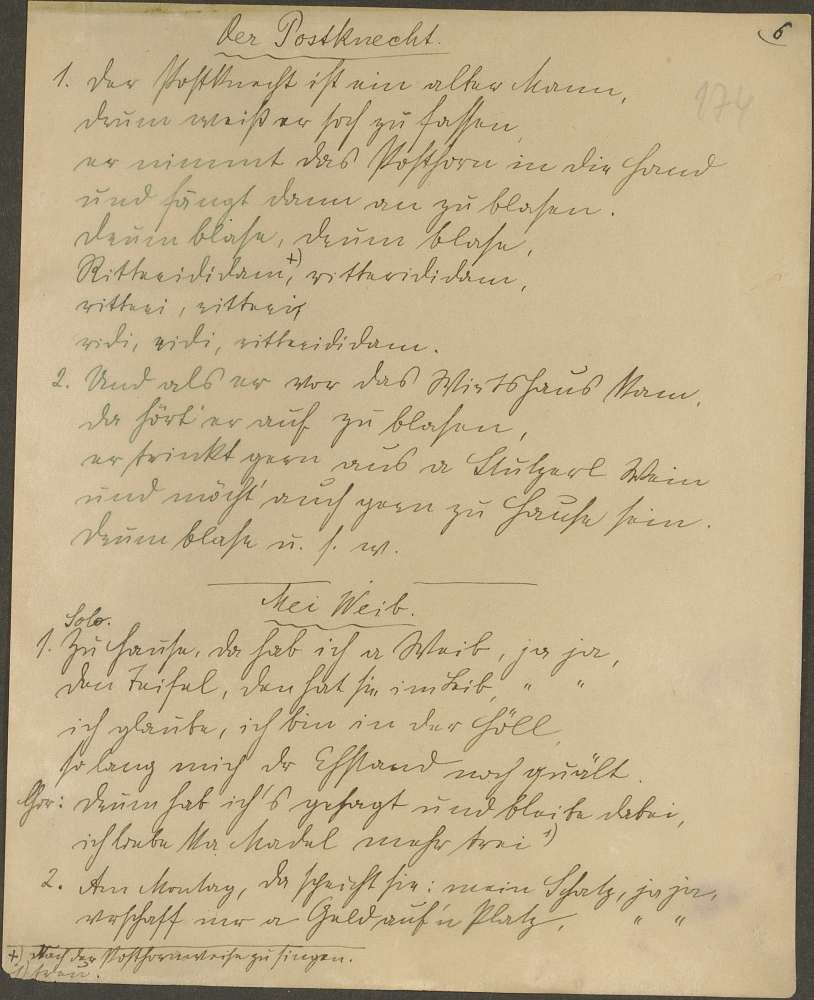 6
174
Der Postknecht.
1. Der Postknecht ist ein alter Mann,
drum weiß er sich zu fassen,
er nimmt das Posthorn in die Hand
und fängt dann an zu blasen.
Drum blase, drum blase,
Ritterididam,+) ritterididam,
ritteri, ritteri,
ridi, ridi, ritterididam.
2. Und als er vor das Wirtshaus kam,
da hört' er auf zu blasen,
er trinkt gern aus a Stutzerl Wein
und möcht' auch gern zu Hause sein.
Drum blase u. s. w.
Mei Weib.
Solo.
1. Zu Hause, da hab ich a Weib, ja ja,
den Teifel, den hat sie im Leib, " "
ich glaube, ich bin in der Höll,
so lang mich dr Ehstand noch quält.
Chor: Drum hab ich's gesagt und bleibe dabei,
ich liebe ka Madel mehr trei 1)
2. Am Montag, da schreit sie: mein Schatz, ja ja,
verschaff mr a Geld auf'n Platz, " "
+) Nach der Posthornweise zu singen.
1) treu.